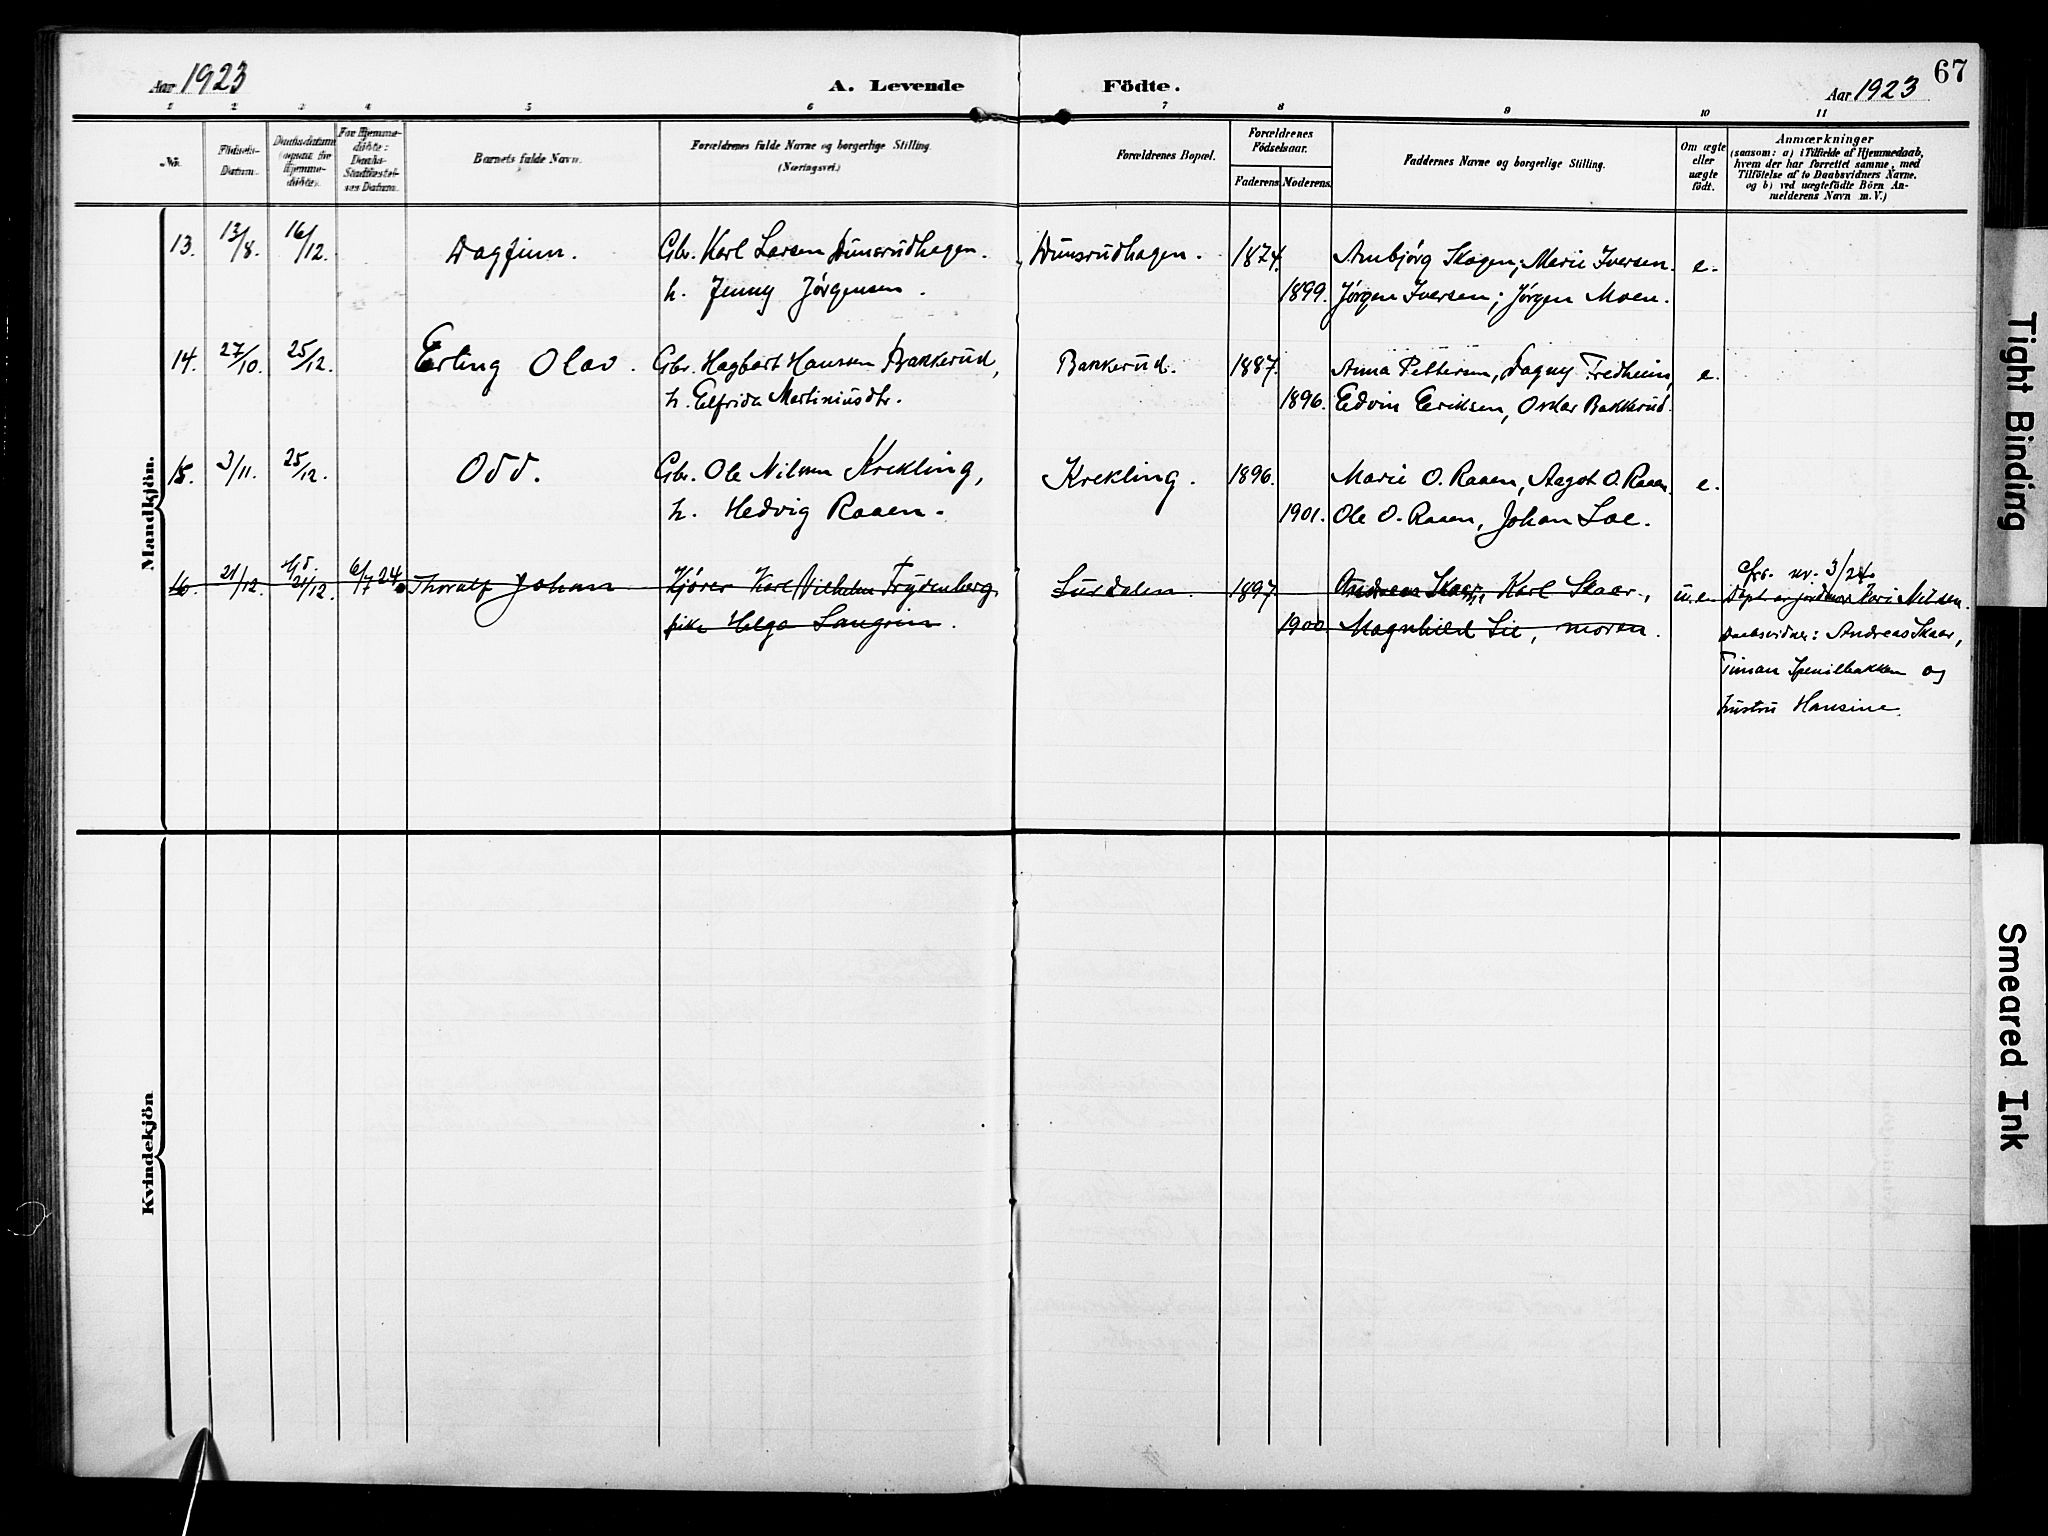 67
Aar 1923
A. Levende Födte.
Aar 1923
1 2 3 4 5 6 7 8 9 10 11
Nr.
Födsels-
Datum.
Daabsdatum
(ogsaa for
Hjemme-
døbte).
For Hjemme-
døbte:
Daabs-
Stadfæstel-
ses Datum.
Barnets fulde Navn.
Forældrenes fulde Navne og borgerlige Stilling.
(Næringsvei.)
Forældrenes Bopæl.
Forældrenes
Fødselsaar.
Faderens. Moderens.
Faddernes Navne og borgerlige Stilling.
Om ægte
eller
uægte
födt.
Anmærkninger
(saasom: a) i Tilfælde af Hjemmedaab,
hvem der har forrettet samme, med
Tilföielse af to Daabsvidners Navne.
og b) ved uægtefödte Börn An-
melderens Navn m. V.)
Mandkjön.
13. 13/8. 16/12. Dagfinn. Gbr. Karl Larsen Dunsrudhagen. Dunsrudhagen. 1874. Arnbjørg Skagen; Marie Iversen. e.
h. Jenny Jørgensen. 1899. Jørgen Iversen; Jørgen Moen.
14. 27/10. 25/12. Erling Olav. Gbr. Hagbart Hansen Bakkerud, Bakkerud. 1887. Anna Pettersen, Dagny Fredheim, e.
h. Elfrida Martiniusdtr. 1896. Edvin Eriksen, Oskar Bakkerud.
15. 3/11. 25/12. Odd. Gbr. Ole Nilsen Krekling, Krekling. 1896. Marie O. Raaen, Aagot O. Raaen. e.
h. Hedvig Raaen. 1901. Ole O. Raaen, Johan Loe.
16. 21/12. 21/12. 6/7 24. Thoralf Johan Kjører Karl Vilhelm Frydenberg Lurdalen. 1897 Andreas Skaar, Karl Skaar, u.e.
pike Helga Langrin. 1900. Magnhild Lie, moren.
cfr. nr. 3/24.
Døpt av jordmor Kari Nilsen.
Daabsvidner: Andreas Skaar,
Timan Spenilbakken og
hustru Hansine.
Kvindekjön
Tight Binding
Smeared Ink